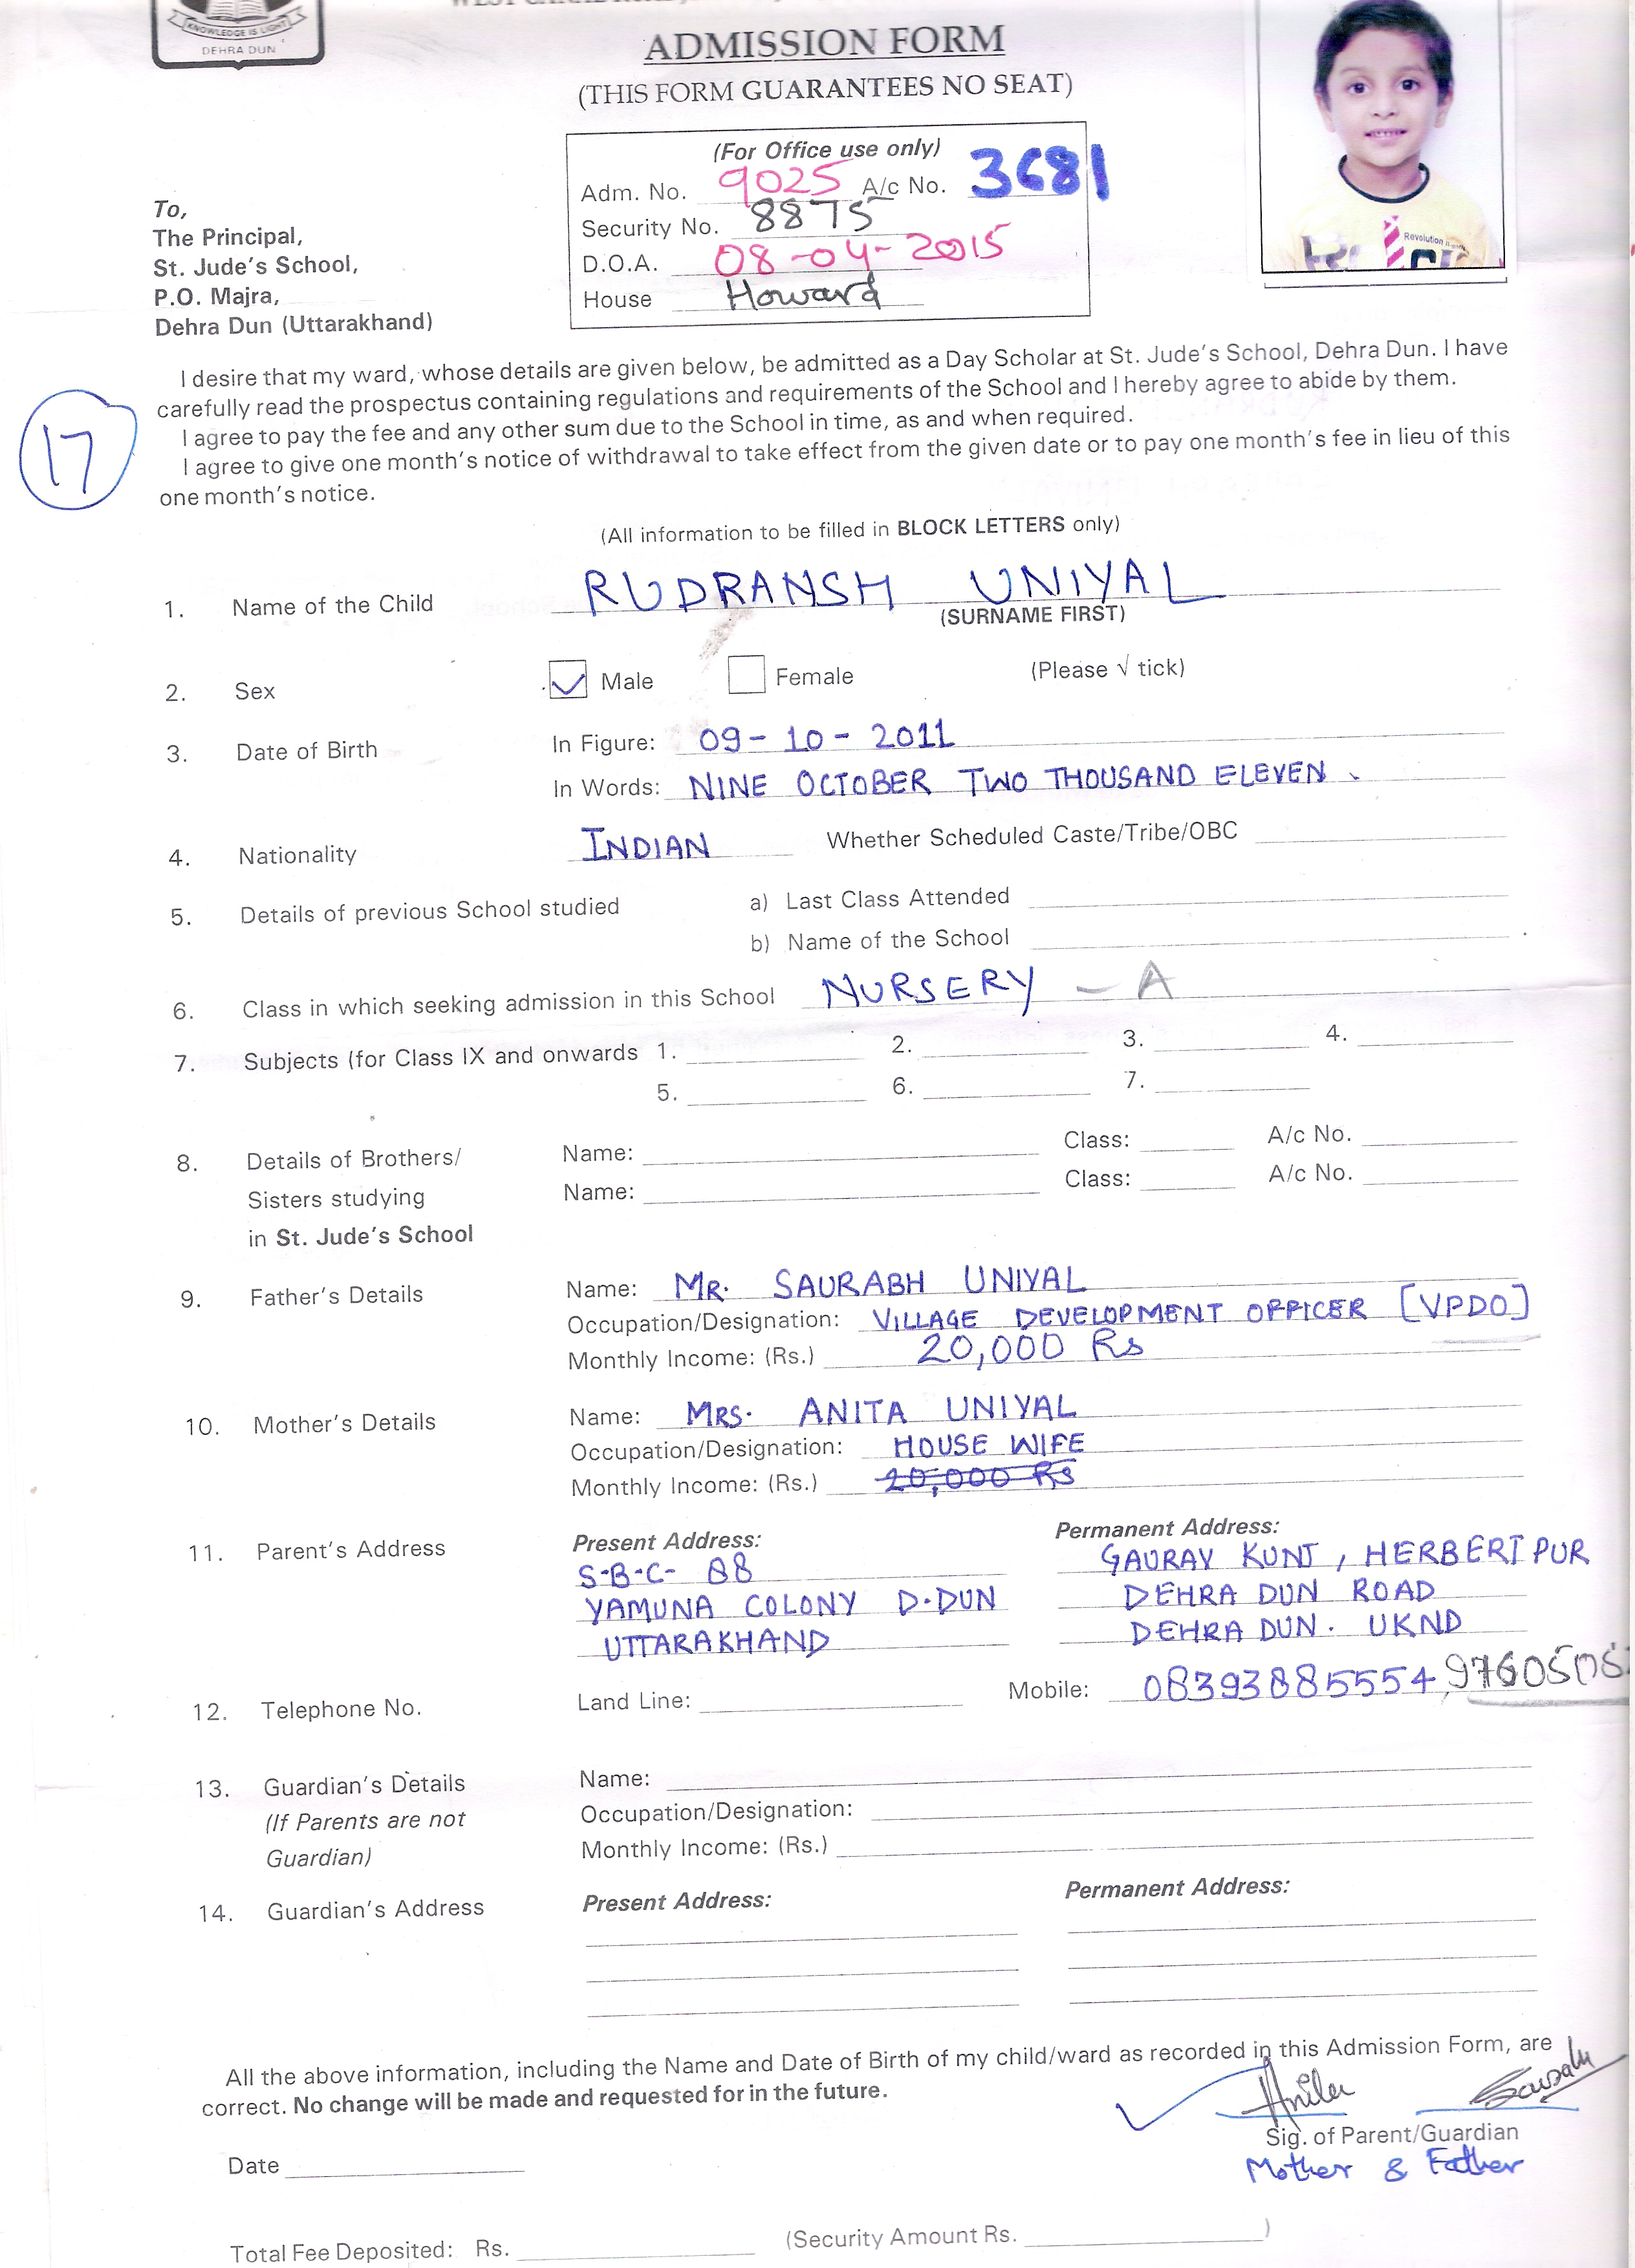 KNOWLEDGE IS LIGHT
DEHRA DUN
ADMISSION FORM
(THIS FORM GUARANTEES NO SEAT)
(For Office use only)
Adm. No. 9025 A/c No. 3681
Security No. 8875
D.O.A. 08-04-2015
House Howard
Revolution
To,
The Principal,
St. Jude's School,
P.O. Majra,
Dehra Dun (Uttarakhand)
I desire that my ward, whose details are given below, be admitted as a Day Scholar at St. Jude's School, Dehra Dun. I have
carefully read the prospectus containing regulations and requirements of the School and I hereby agree to abide by them.
I agree to pay the fee and any other sum due to the School in time, as and when required.
I agree to give one month's notice of withdrawal to take effect from the given date or to pay one month's fee in lieu of this
one month's notice.
17
(All information to be filled in BLOCK LETTERS only)
1. Name of the Child RUDRANSH UNIYAL
(SURNAME FIRST)
2. Sex Male Female (Please √ tick)
3. Date of Birth In Figure: 09-10-2011
In Words: NINE OCTOBER TWO THOUSAND ELEVEN.
4. Nationality INDIAN Whether Scheduled Caste/Tribe/OBC
5. Details of previous School studied a) Last Class Attended
b) Name of the School
6. Class in which seeking admission in this School NURSERY - A
7. Subjects (for Class IX and onwards 1. 2. 3. 4.
5. 6. 7.
8. Details of Brothers/ Name: Class: A/c No.
Sisters studying Name: Class: A/c No.
in St. Jude's School
9. Father's Details Name: MR. SAURABH UNIYAL
Occupation/Designation: VILLAGE DEVELOPMENT OFFICER [VPDO]
Monthly Income: (Rs.) 20,000 Rs
10. Mother's Details Name: MRS. ANITA UNIYAL
Occupation/Designation: HOUSE WIFE
Monthly Income: (Rs.) 20,000 Rs
11. Parent's Address Present Address: Permanent Address:
S-B-C- 88 GAURAV KUNJ, HERBERTPUR
YAMUNA COLONY D.DUN DEHRA DUN ROAD
UTTARAKHAND DEHRA DUN. UKND
12. Telephone No. Land Line: Mobile: 08393885554,
13. Guardian's Details Name:
(If Parents are not Occupation/Designation:
Guardian) Monthly Income: (Rs.)
14. Guardian's Address Present Address: Permanent Address:
All the above information, including the Name and Date of Birth of my child/ward as recorded in this Admission Form, are
correct. No change will be made and requested for in the future.
Anita
Sig. of Parent/Guardian
Date Mother & Father
Total Fee Deposited: Rs. (Security Amount Rs. )